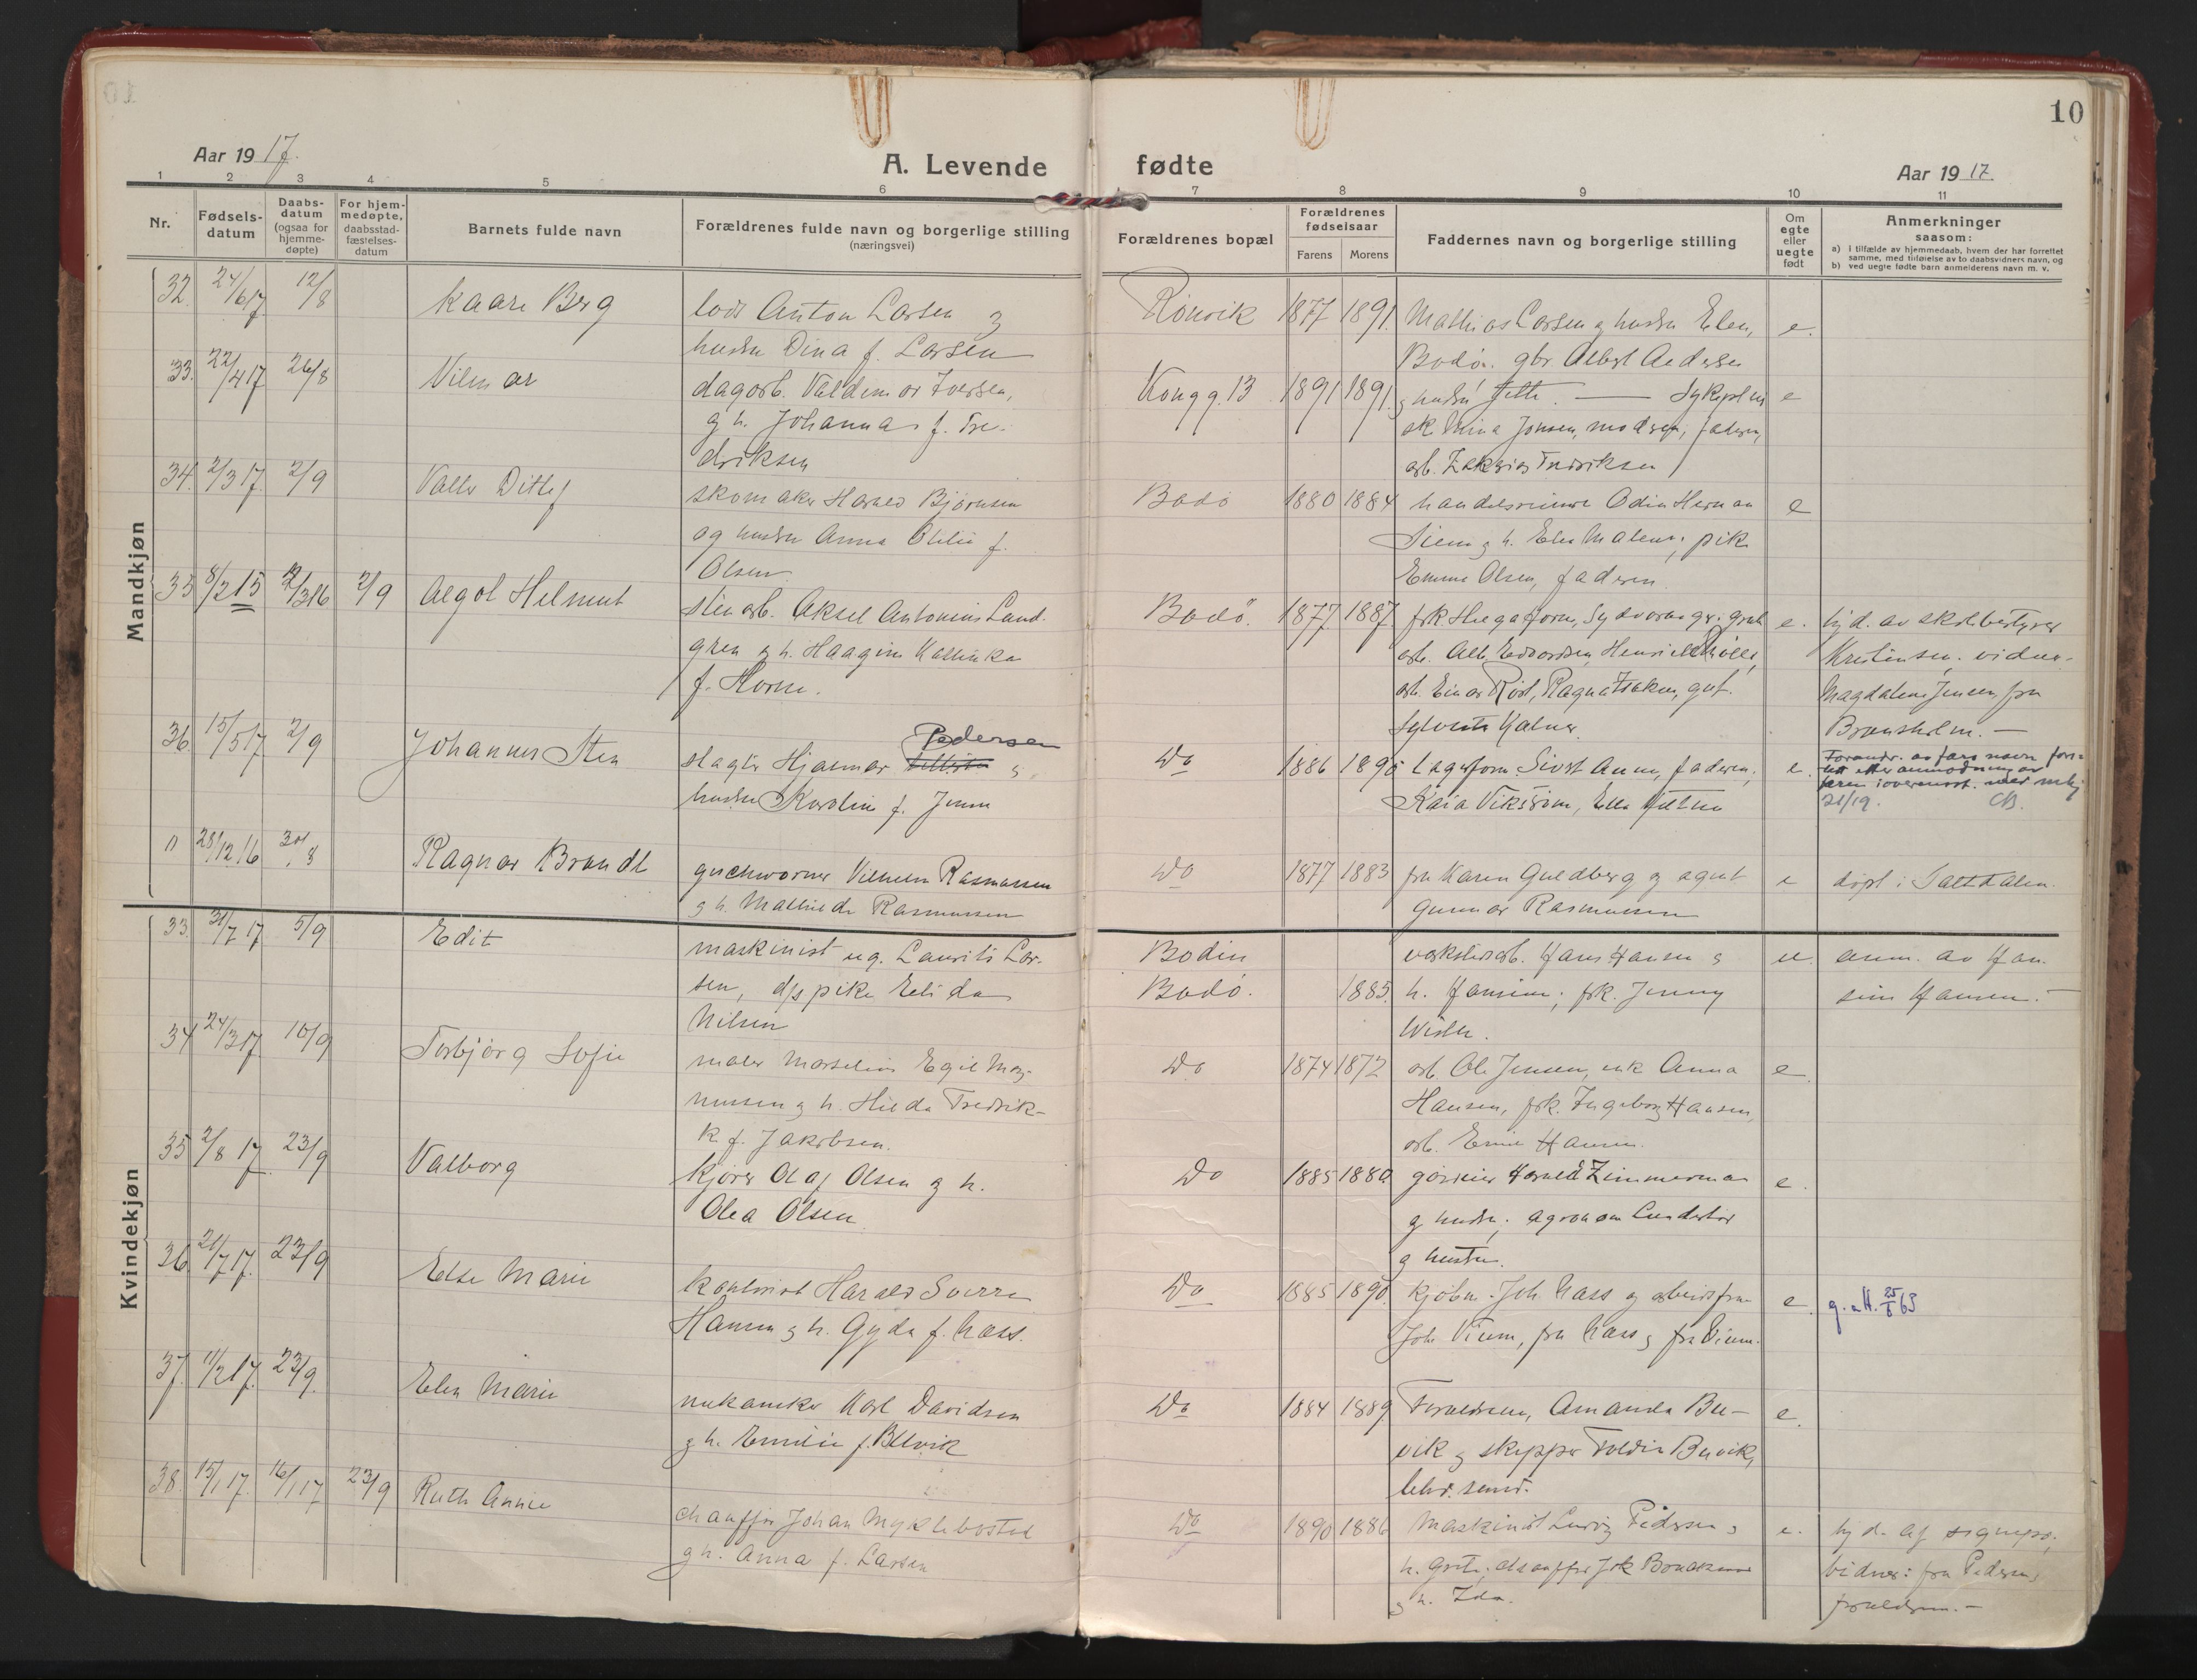 10
Aar 1917.
A. Levende fødte
Aar 1917.
1 2 3 4 5 6 7 8 9 10 11
Nr.
Fødsels-
datum
Daabs-
datum
(ogsaa for
hjemme-
døpte)
For hjem-
medøpte,
daabsstad-
fæstelses-
datum
Barnets fulde navn
Forældrenes fulde navn og borgerlige stilling
(næringsvei)
Forældrenes bopæl
Forældrenes
fødselsaar
Farens Morens
Faddernes navn og borgerlige stilling
Om
egte
eller
uegte
født
Anmerkninger
saasom:
a) i tilfælde av hjemmedaab, hvem der har forrettet
samme, med tilføielse av to daabsvidners navn, og
b) ved uegte fødte barn anmelderens navn m. v.
Mandkjøn
32. 24/6 17 12/8 Kaare Berg
lods Anton Larsen og
hustru Dina f. Larsen
Rönvik 1877 1891.
Mathias Larsen og hustru Elen, e.
Bodö. gbr Albert Andersen
33. 22/4 17 26/8 Vilmar
dagarb. Valdemar Iversen,
g h. Johanna f. Fre-
driksen
Kongg. 13 1891 1891.
g hustru Jette. — Sykepleier e
Mina Jonsen, moderen, faderen,
arb. Zakrias Fredriksen
34. 2/3 17. 2/9 Valter Ditlef
skomaker Harald Björnsen
og hustru Anna Otelie f.
Olsen.
Bodö 1880 1884
handelsreisende Odin Herman e
Siem g h. Elen Malene, pike
Emma Olsen, faderen.
35 8/2 15 12/3 16 2/9 Algot Helmut
stenarb. Aksel Antonius Land-
gren g h. Haagine Kattinka
f. Horne.
Bodö. 1877 1887
e. hjd. av skolebestyrer
Kristensen. vidner.
Magdalene Jensen, fru
Bransholm. —
36. 15/5 17 2/9 Johannes Sten
slagter Hjalmar Pedersen g
hustru Karoline f. Jensen
Do 1886 1895
faderen, e.
Kaia Vikström, Ella
Forandr. av fars navn fore-
tat efter anmodning av
faren i overensst. med mkj
21/19. CB.
" 28/12 16 30/8 Ragnar Brandt
Vilhelm Rasmussen
g h. Mathilde Rasmussen
Do 1877 1883
fru Karen Guldberg og agent e döpt i Saltdalen.
Gunnar Rasmussen
Kvindekjøn
33. 31/7 17 5/9 Edit
maskinist ug. Laurits Lar-
sen, d/s pike Elida
Nilsen
Bodin
Bodö. 1885.
verkstedsarb. Hans Hansen g ue. anm. av Han-
h. Hansine; frk. Jenny sine Hansen. —
34 24/3 17. 16/9 Torbjörg Sofie
maler Marselius Egil Mag-
nussen g h. Hilda Fredrik-
k f. Jakobsen.
Do 1874 1872
arb. Ole Jensen, enk Anna e
Hansen, frk. Ingeborg Hansen,
arb. Emil Hansen.
35 2/8 17. 23/9 Valborg
kjörer Olaf Olsen g h.
Olea Olsen
Do 1885 1880
gartner Harald Zimmerman e.
g hustru; agronom
g hustru.
36 21/7 17. 23/9 Else Marie
kontorist Harald Sverre
Hansen g h. Gyda f. Nass.
Do 1885 1890.
Kjöbm. Joh. Nass g e. g. aH. 25/5 63
Joh. Vium, fru Nass g fru Vium.
37. 11/2 17. 23/9. Elen Marie
mekaniker Karl Davidsen
g h. Emilie f. Buvik
Do 1884 1889
Foreldrene, Amanda Bu- e.
vik g skipper Buvik,
38. 15/1 17. 16/1 17 23/9 Ruth Annie
chauffør Johan Myklebostad
g h. Anna f. Larsen
Do 1890 1886
Maskinist Ludvig Pedersen g e. hjd. af sognepr.;
h. Grete, chauffør vidner: fru Pedersen g
g h. Ida. foreldrene. —